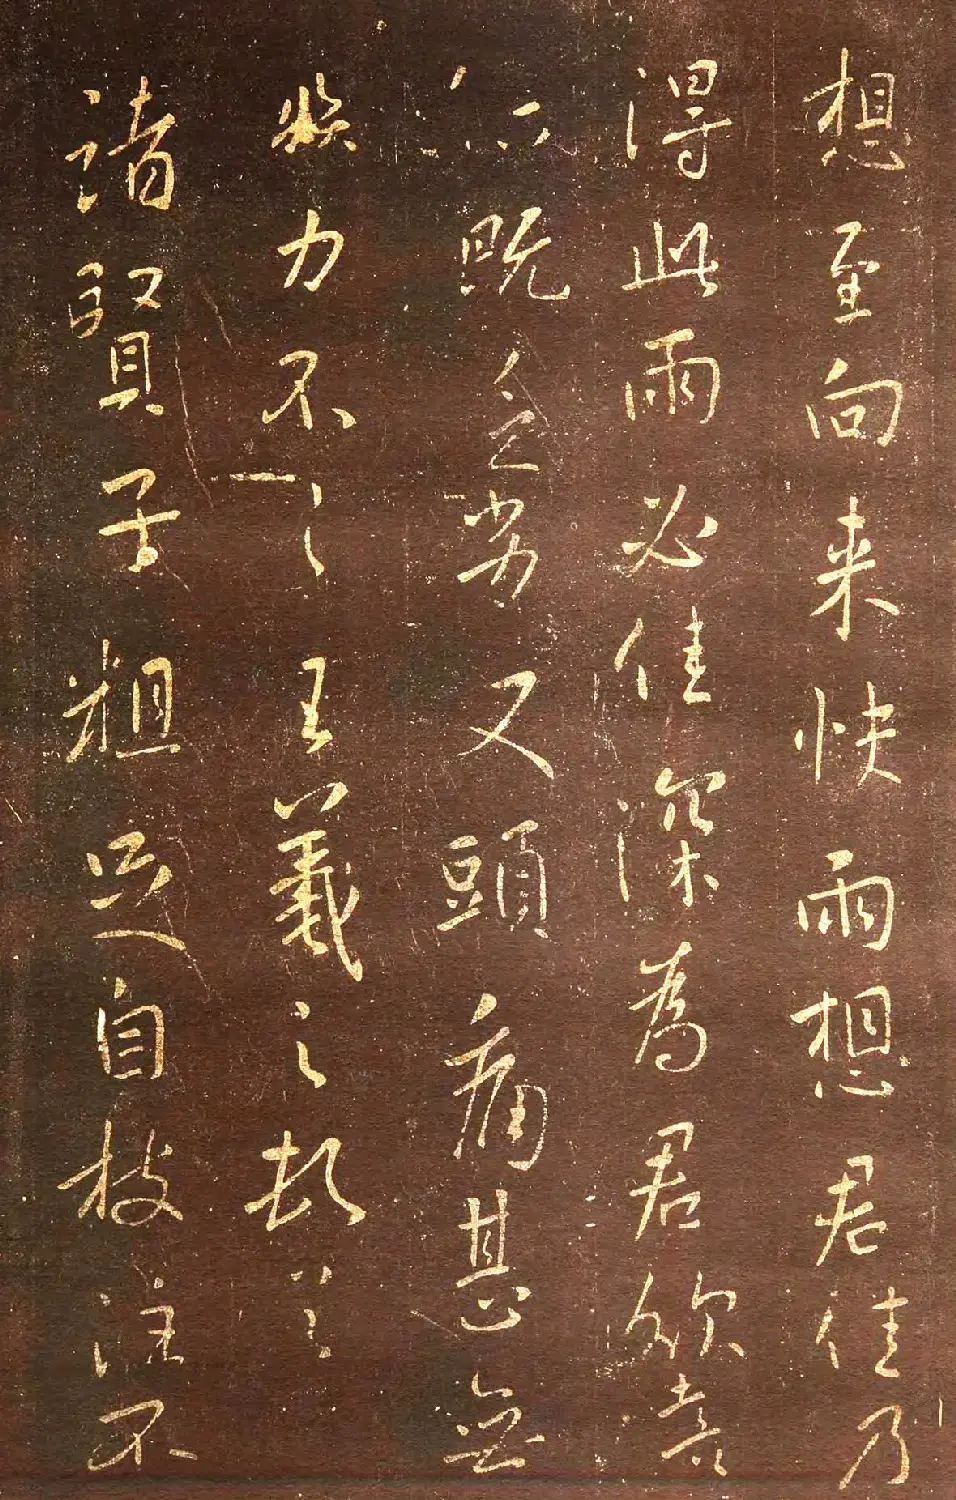 想至向來快雨想君佳乃
得此雨必佳深為君欣喜
既乏劣又頭痛甚無
力不一一王羲之頓首
諸賢子粗足自枝注不